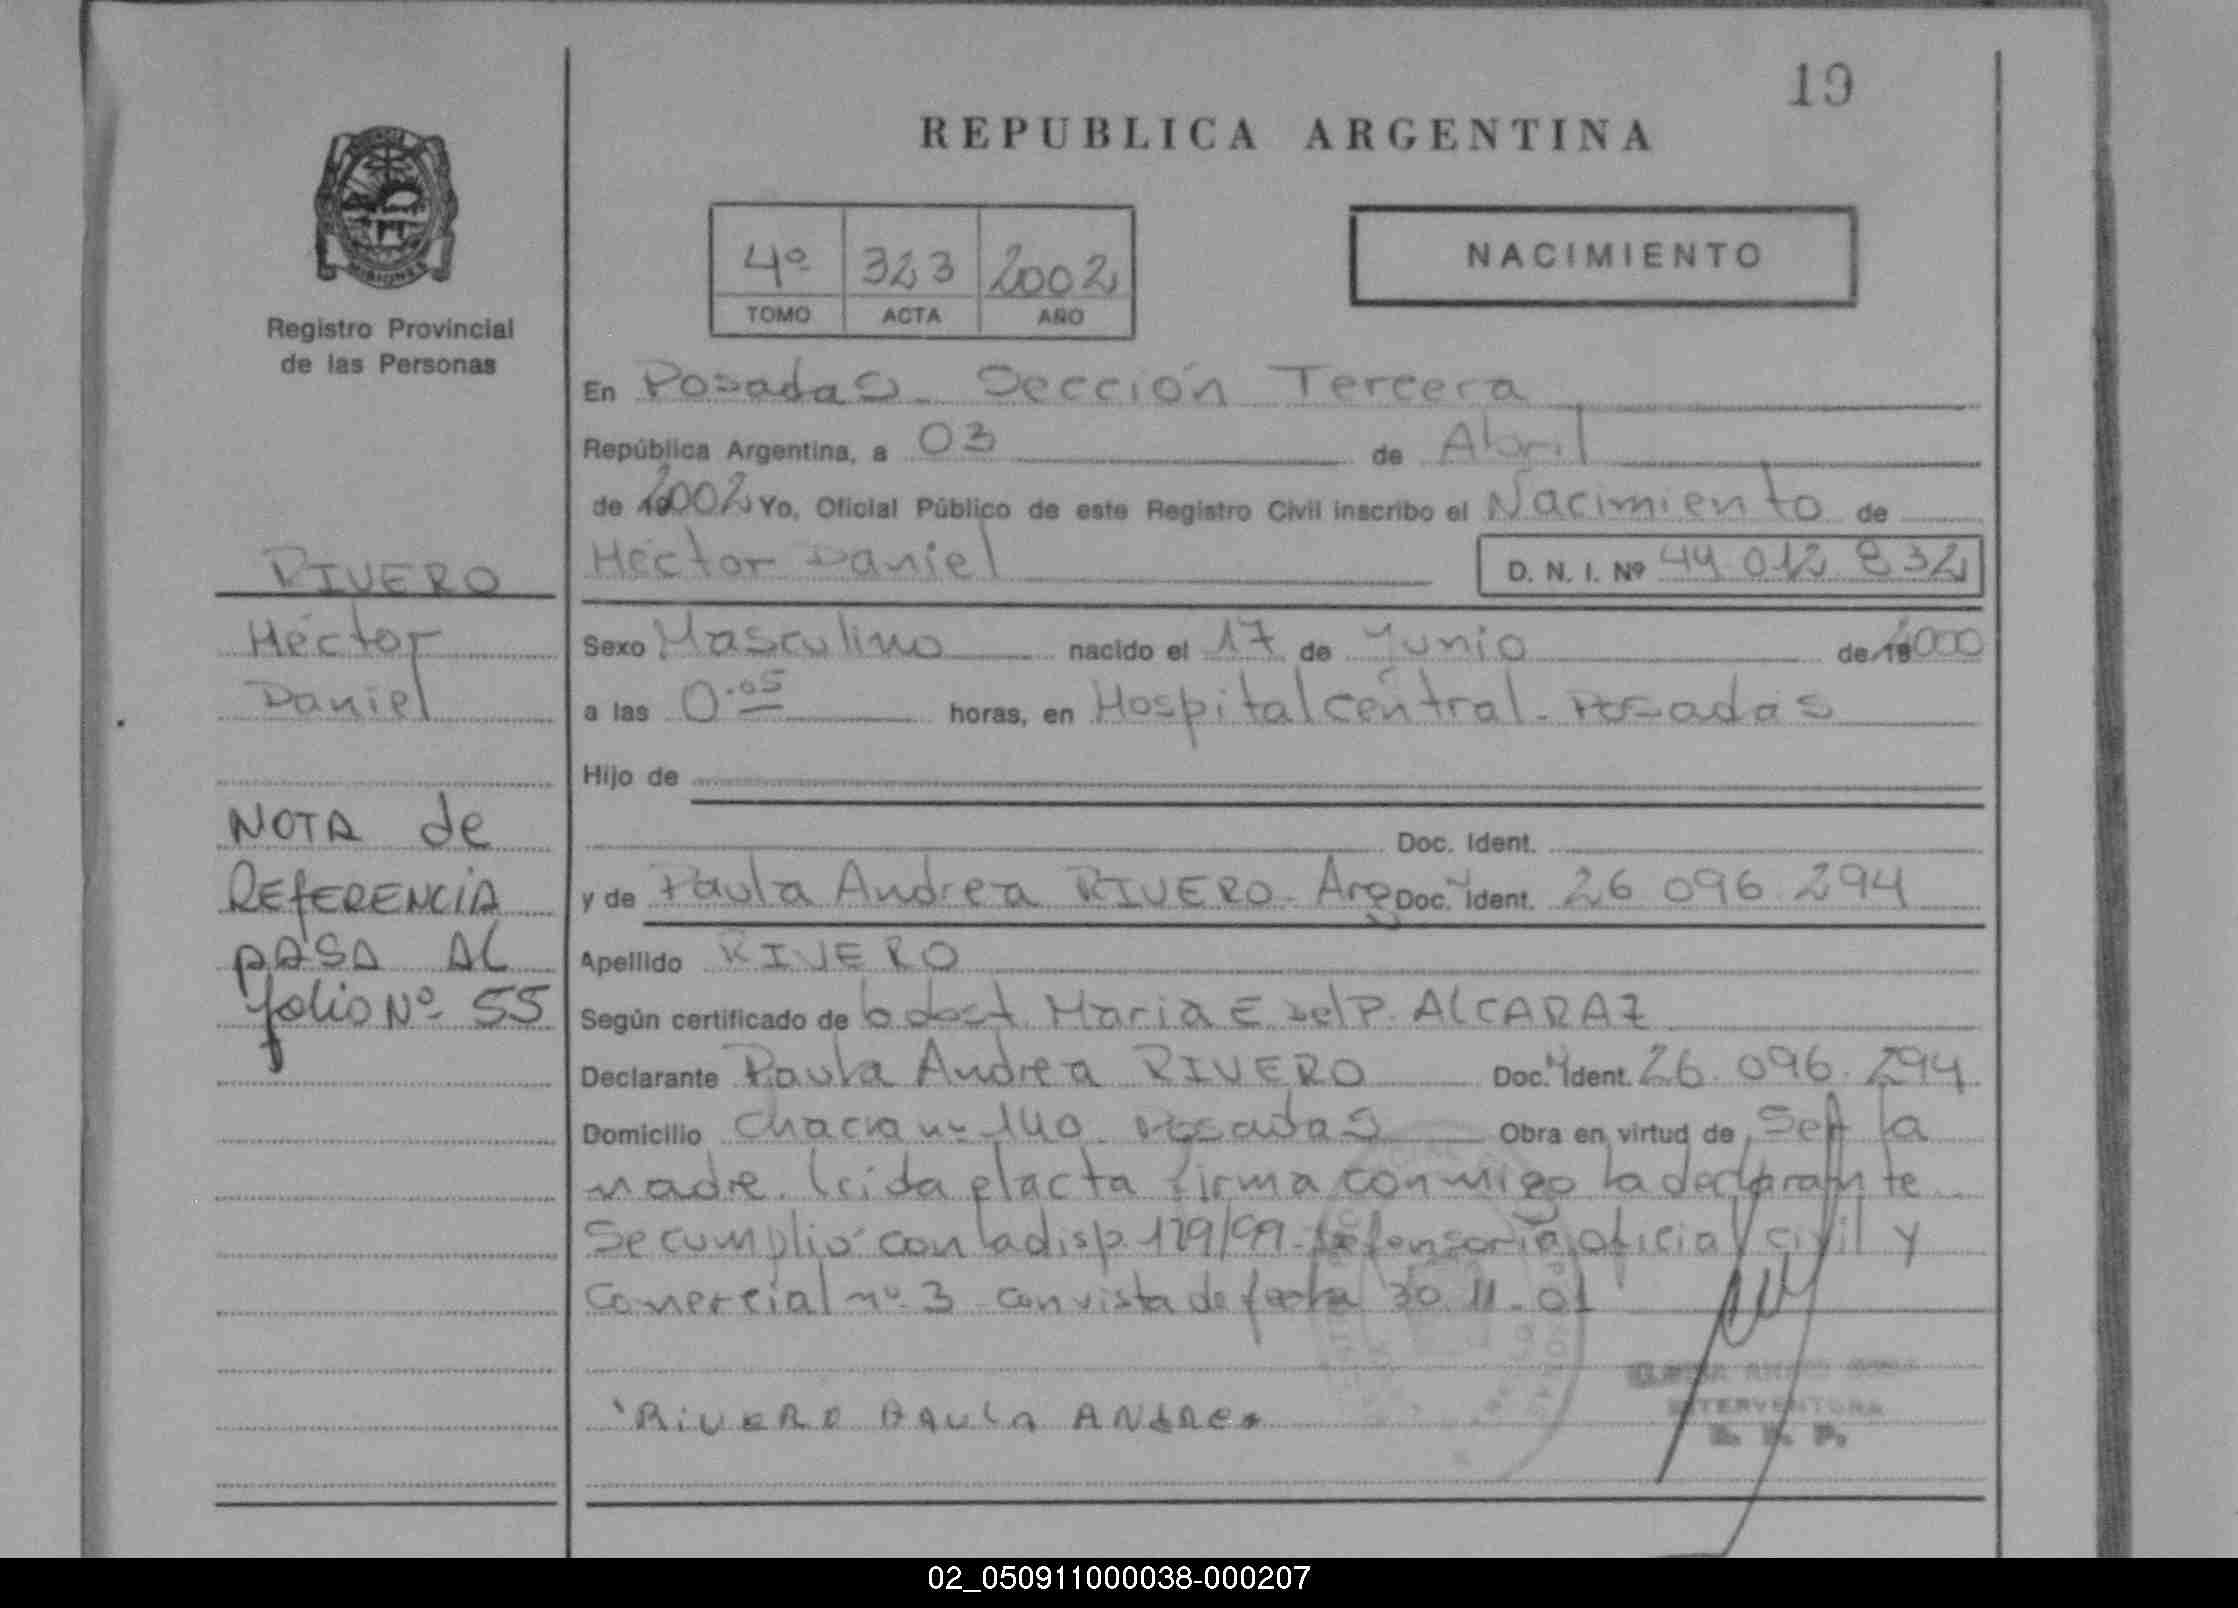 19
REPUBLICA ARGENTINA
4º 323 2002
TOMO ACTA AÑO
NACIMIENTO
MISIONES
Registro Provincial
de las Personas
En Posadas - Sección Tercera
República Argentina, a 03 de Abril
de 2002 Yo, Oficial Público de este Registro Civil inscribo el Nacimiento de
Héctor Daniel D. N. I. Nº 44 012 832
RIVERO
Héctor
Daniel
NOTA de
REfERENCIA
pASA AL
folio Nº 55
Sexo Masculino nacido el 17 de Junio de 2000
a las 0.05 horas, en Hospital central - Posadas
Hijo de
Doc. Ident.
y de Paula Andrea RIVERO - Arg Doc. Ident. 26 096 294
Apellido RIVERO
Según certificado de obst María E. del P. ALCARAZ
Declarante Paula Andrea RIVERO Doc. Ident. 26.096.294
Domicilio Chacra nº 140 - Posadas Obra en virtud de Ser la
madre. leída el acta firma conmigo la declarante
Se cumplió con la disp. 179/99 - Defensoría oficial civil y
Comercial nº 3 con vista de fecha 30.11.01
RIVERO PAULA ANDREA
INTERVENTORA
R. P. P.
02_050911000038-000207